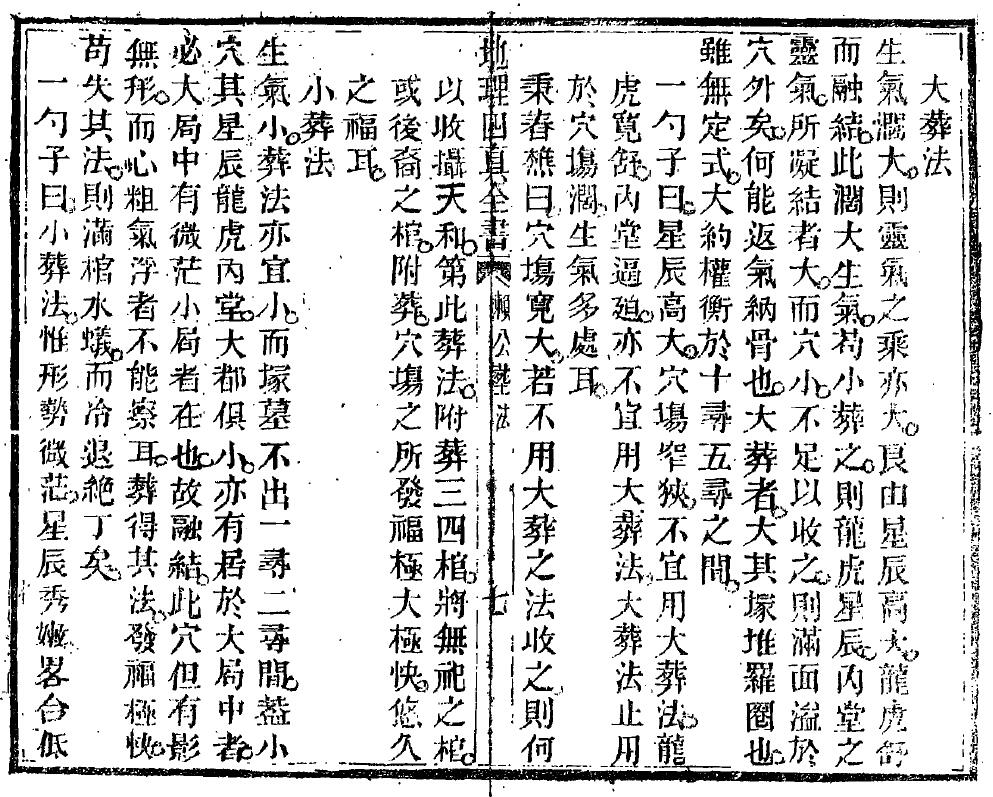 大葬法
生氣濶大則靈氣之乘亦大良由星辰高大龍虎舒
而融結此濶大生氣苟小葬之則龍虎星辰內堂之
靈氣所凝結者大而穴小不足以收之則滿面溢於
穴外矣何能返氣納骨也大葬者大其塚堆羅圈也
雖無定式大約權衡於十尋五尋之間
一勺子曰星辰高大穴塲窄狹不宜用大葬法龍
虎寬舒內堂逼廹亦不宜用大葬法大葬法止用
於穴塲濶生氣多處耳
秉春樵曰穴塲寬大若不用大葬之法收之則何
地理囬真全書 賴公葬法 七
以收攝天和第此葬法附葬三四棺將無祀之棺
或後裔之棺附葬穴塲之所發福極大極快悠久
之福耳
小葬法
生氣小葬法亦宜小而塚墓不出一尋二尋間葢小
穴其星辰龍虎內堂大都俱小亦有居於大局中者
必大局中有微茫小局者在也故融結此穴但有影
無形而心粗氣浮者不能察耳葬得其法發福極快
苟失其法則滿棺水蟻而冷退絕丁矣
一勺子曰小葬法惟形勢微茫星辰秀嫩畧合低